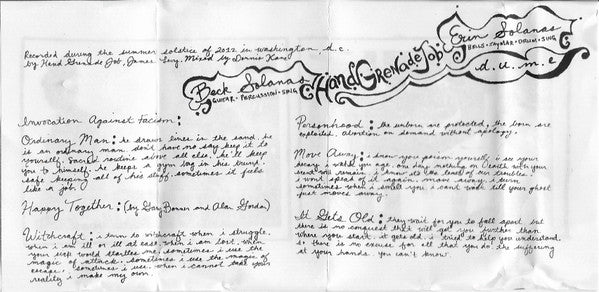 Recorded during the summer solstice of 2012 in washington, d.c.
by Hand Grenade Job, James Levy. Mixed by Dennis Kane
Beck Solanas
GUITAR • PERCUSSION • SING
Hand Grenade Job
Erin Solanas
BELLS • DRUM • SING
d.u.m.e
Invocation Against Facism:
Ordinary Man: he draws lines in the sand. he
is an ordinary man. don't have no say keep it to
yourself. sacred routine above all else. he'll keep
you to himself. he keeps a gym bag in his trunk.
safe keeping all of his stuff. sometimes it feels
like a job
Happy Together: (by Gary Bonner and Alan Gordon)
Witchcraft: i turn to witchcraft when i struggle.
when i am ill or ill at ease, when i am lost, when
your step would startle me, sometimes i use the
magic of attack. sometimes i use the magic of
escape. sometimes i use. when i cannot take your
reality i make my own.
Personhood: the unborn are protected, the born are
exploited. abortion on demand without apology.
Move Away: i know you poison yourself, i see your
decay. i watch you age one day. nothing on earth with your
will remain. i know it's the least of our troubles. i
won't speak of it again. moran away, i turn.
sometimes when i smell you i can't wait till your ghost
just moves away.
It Gets Old: they wait for you to fall apart but
there is no conquest that will get you further than
where you start. it gets old. i tried to help you understand.
so there is no excuse for all that you do. the suffering
at your hands. you can't know.